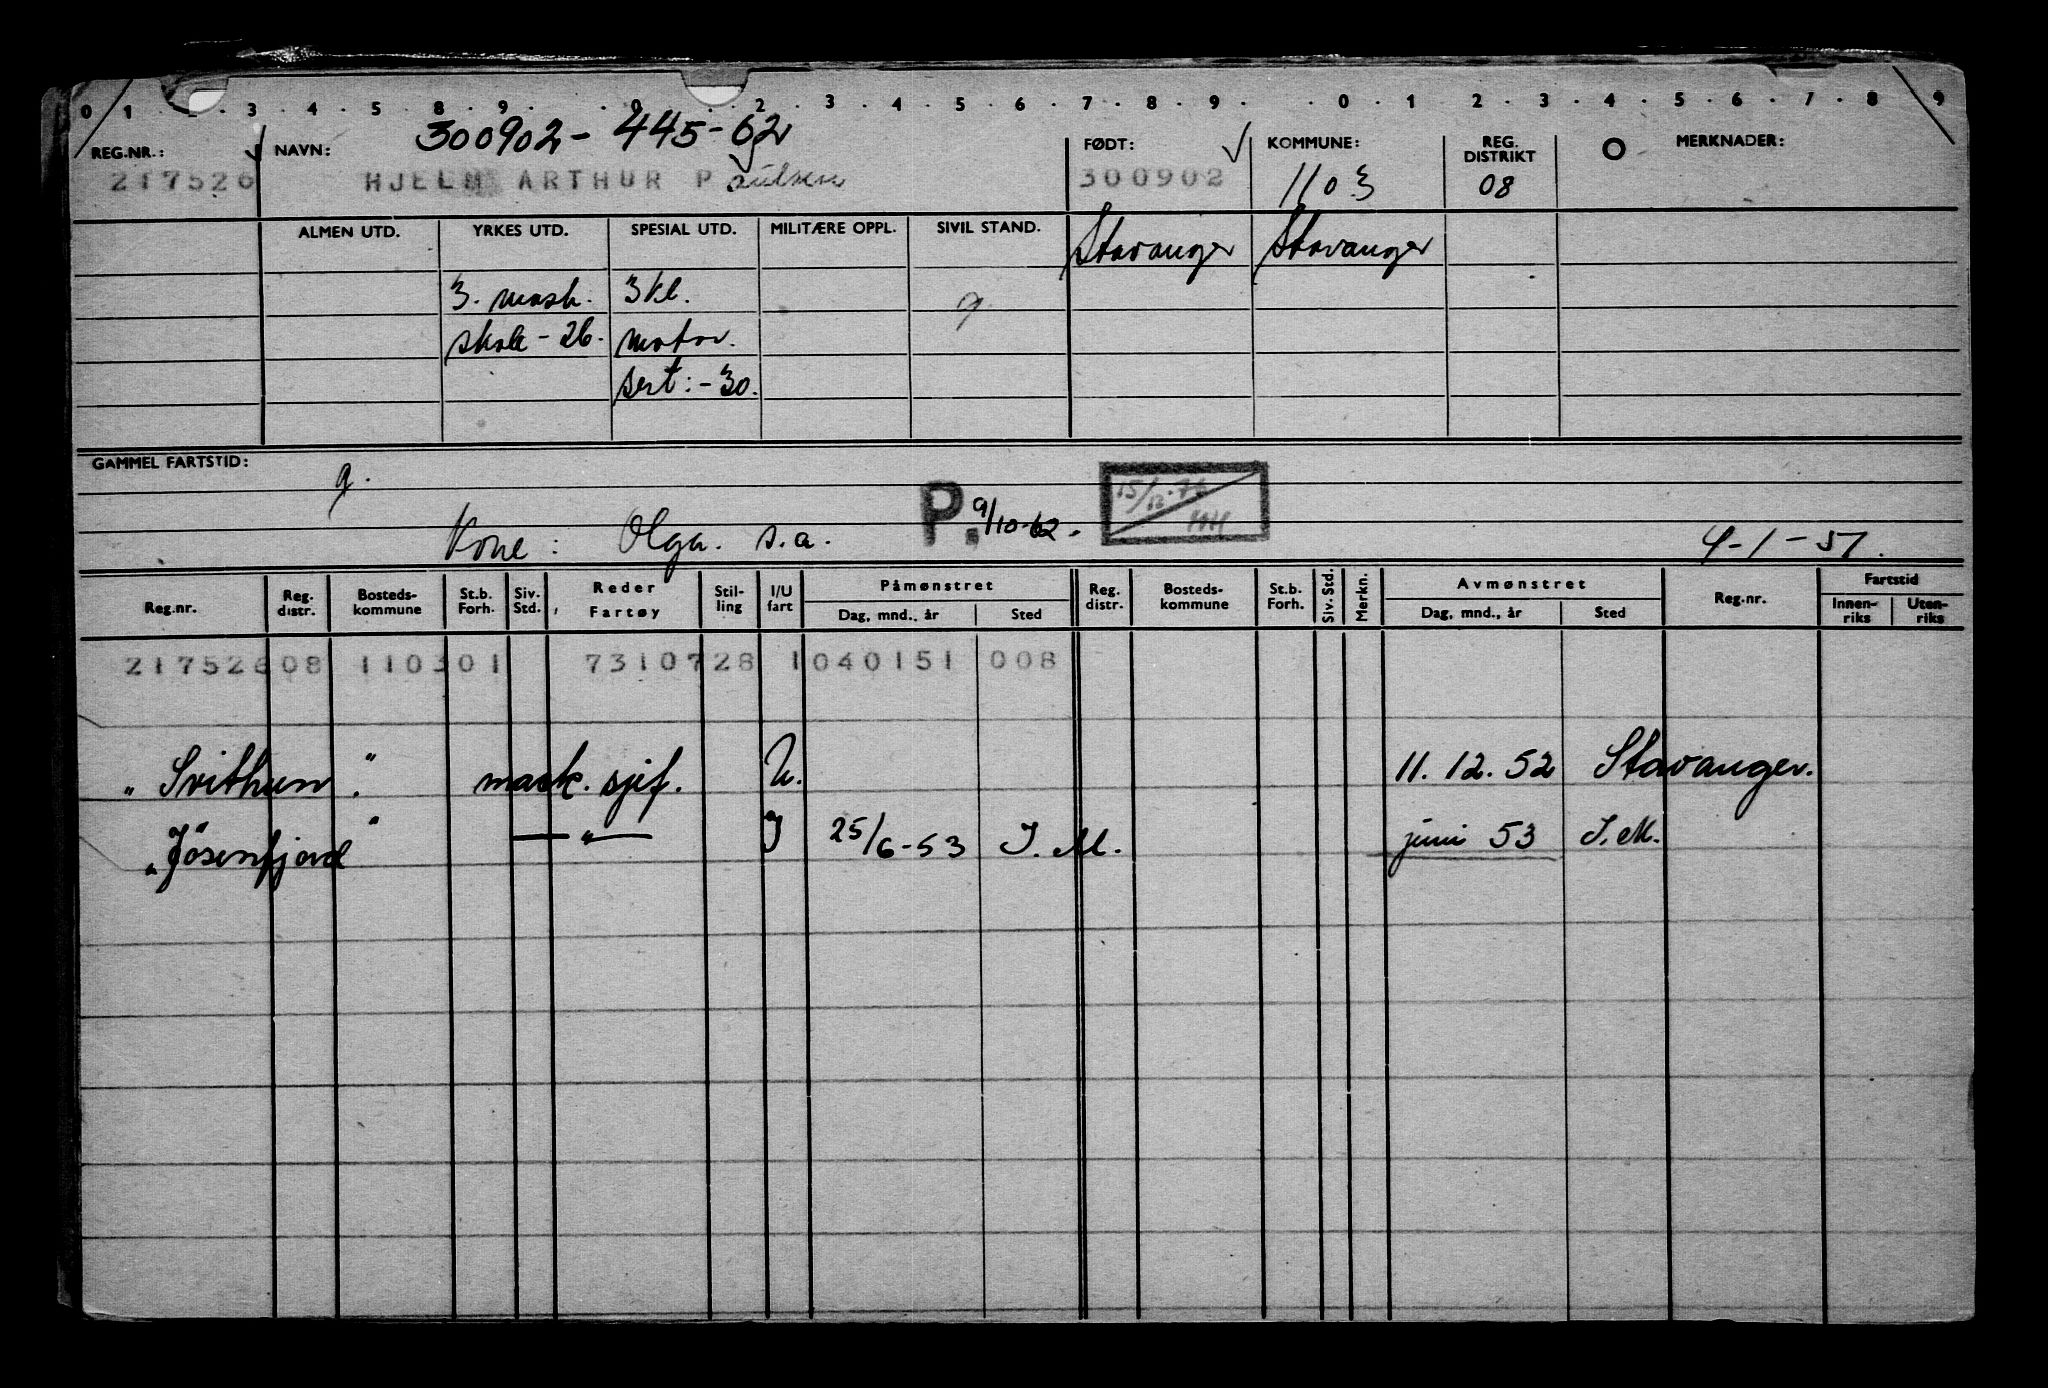 0 1 3 4 5 8 9 0 2 3 4 5 6 7 8 9 0 1 2 3 4 5 6 7 8 9
300902-445-62
REG.NR.: NAVN: FØDT: KOMMUNE: REG. DISTRIKT O MERKNADER:
217526 HJELM ARTHUR Paulsen 300902 1103 08
ALMEN UTD. YRKES UTD. SPESIAL UTD. MILITÆRE OPPL. SIVIL STAND. Stavanger Stavanger
3. mask. 3 kl. g
skole - 26. motor.
sert: - 30.
GAMMEL FARTSTID: g.
Kone: Olga. s.a. P. 9/10-62. 15/12.76 4-1-51.
Reg.nr. Reg. distr. Bosteds-kommune St.b. Forh. Siv. Std. Reder Fartøy Stil-ling I/U fart Påmønstret Dag, mnd., år Sted Reg. distr. Bosteds-kommune St.b. Forh. Siv. Std. Merkn. Avmønstret Dag, mnd., år Sted Reg.nr. Fartstid Innen-riks Uten-riks
217526 08 110301 7310728 1 040151 008
"Svithun" mask. sjef. U. 11.12.52 Stavanger.
"Jøsenfjord" — " — I 25/6-53 I.M. juni 53 I.M.